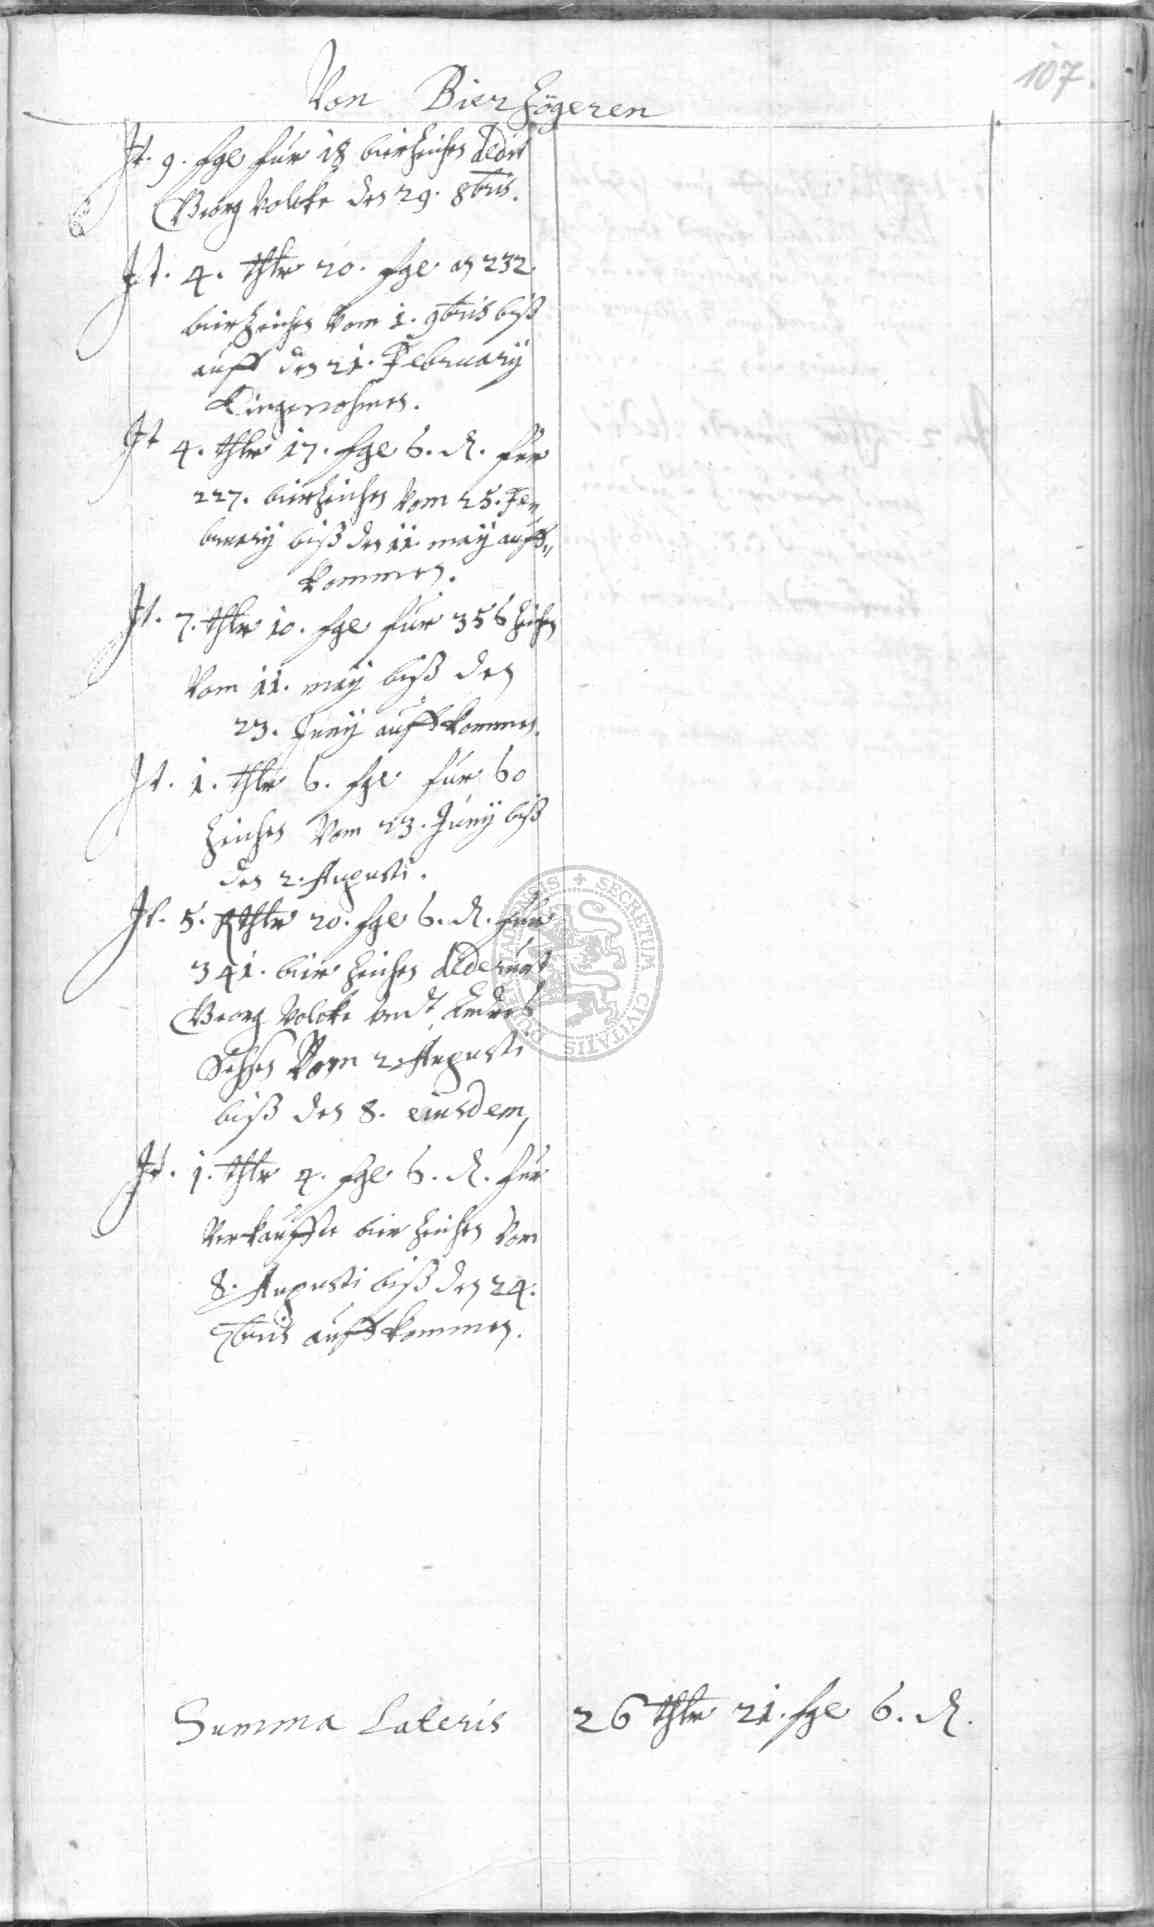 107.
Von Bierhögeren
It. 9. fgl für 18 bierzeichen dedit
Georg Volcke den 29. 8bris.
It. 4. thlr 20. fgl aß 232
bierzeichen vom 1. 9bris biß
auff den 21. February
eingenohmen.
It 4. thlr 17. fgl 6. d. für
227. bierzeichen vom 25. Fe„
bruary biß den 11. may auff„
kommen.
It. 7. thlr 10. fgl für 356 zeichen
vom 11. may biß den
23. Juny auffkommen.
It. 1. thlr 6. fgl für 60
zeichen vom 23. Juny biß
den 2. Augusti.
It. 5. thlr 20. fgl 6. d. für
341. bier zeichen dederunt
Georg Volcke undt
vom 2. Augusti
biß den 8. eiusdem,
It. 1. thlr 4. fgl 6. d. für
verkauffte bier zeichen vom
8. Augusti biß den 24.
7bris auffkommen.
Summa Lateris 26 thlr 21. fgl 6. d.
SECRETUM CIVITATIS